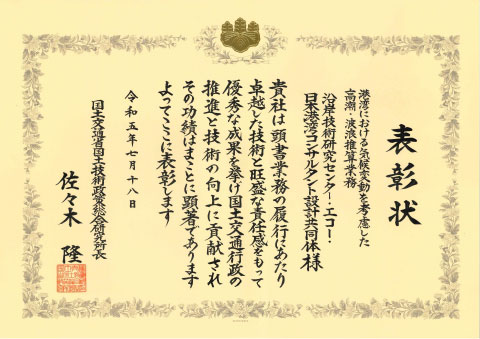 表彰状
港湾における気候変動を考慮した
高潮・波浪推算業務
沿岸技術研究センター・エコー・
日本港湾コンサルタント設計共同体 様
貴社は頭書業務の履行にあたり
卓越した技術と旺盛な責任感をもって
優秀な成果を挙げ国土交通行政の
推進と技術の向上に貢献され
その功績はまことに顕著であります
よってここに表彰します
令和五年七月十八日
国土交通省国土技術政策総合研究所長
佐々木 隆